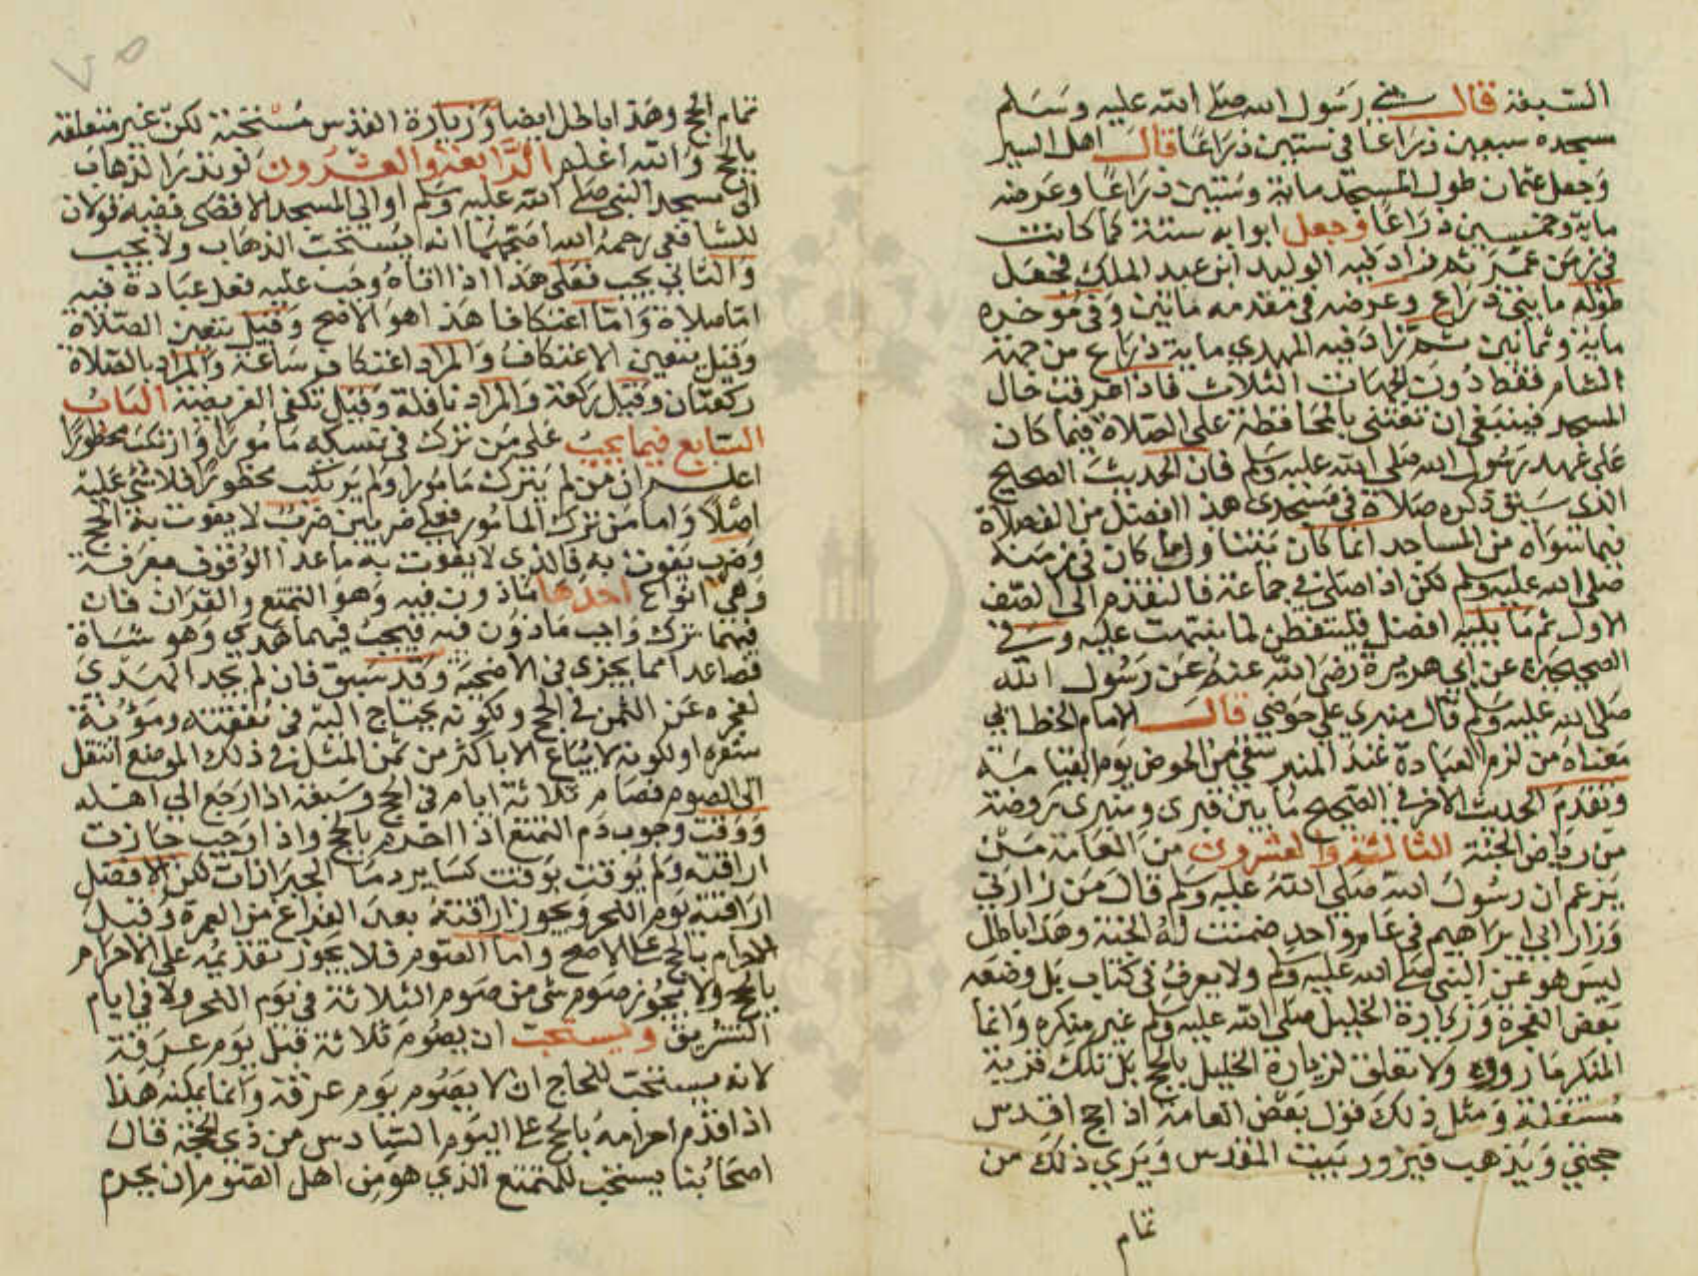 السبعة قال بنى رسول الله صلى الله عليه وسلم
مسجده سبعين ذراعا في ستين ذراعا قال اهل السير
وجعل عثمان طول المسجد مائة وستين ذراعا وعرضه
مائة وخمسين ذراعا وجعل ابوابه ستة كما كانت
في زمن عمر ثم زاد فيه الوليد ابن عبد الملك فجعل
طوله مايتي ذراع وعرضه في مقدمه مايتين وفي موخره
ماية وثمانين ثم زاد فيه المهدي ماية ذراع من جهة
الشام فقط دون الجهات الثلاث فاذا عرفت حال
المسجد فينبغي ان تعتني بالمحافظة على الصلاة فيما كان
على عهد رسول الله صلى الله عليه وسلم فان الحديث الصحيح
الذي سبق ذكره صلاة في مسجدي هذا افضل من الف صلاة
فيما سواه من المساجد انما كان يتناول ما كان في زمنه
صلى الله عليه وسلم لكن اذا صلى في جماعة فالتقدم الى الصف
الاول ثم ما يليه افضل فليتفطن لما نبهت عليه وفي
الصحيح عن ابي هريرة رضي الله عنه عن رسول الله
صلى الله عليه وسلم قال منبري على حوضي قال الامام الخطابي
معناه من لزم العبادة عند المنبر سقي من الحوض يوم القيامة
وتقدم الحديث الاخر في الصحيح ما بين قبري ومنبري روضة
من رياض الجنة الثالثة والعشرون من العامة من
يزعم ان رسول الله صلى الله عليه وسلم قال من زارني
وزار ابي ابراهيم في عام واحد ضمنت له الجنة وهذا باطل
ليس هو عن النبي صلى الله عليه وسلم ولا يعرف في كتاب بل وضعه
بعض الفجرة وزيارة الخليل صلى الله عليه وسلم غير منكره وانما
المنكر ما رووه ولا تعلق لزيارة الخليل بالحج بل تلك قربة
مستقلة ومثل ذلك قول بعض العامة اذا حج اقدس
حجتي ويذهب فيزور بيت المقدس ويرى ذلك من
تمام
تمام الحج وهذا باطل ايضا وزيارة القدس مستحبة لكن غير متعلقة
بالحج والله اعلم الرابعة والعشرون لو نذر الذهاب
الى مسجد النبي صلى الله عليه وسلم او الى المسجد الاقصى ففيه قولان
للشافعي رحمه الله اصحهما انه يستحب الذهاب ولا يجب
والثاني يجب فعلى هذا اذا اتاه وجب عليه فعل عبادة فيه
اما صلاة واما اعتكافا هذا هو الاصح وقيل يتعين الصلاة
وقيل يتعين الاعتكاف والمراد اعتكاف ساعة والمراد بالصلاة
ركعتان وقيل ركعة والمراد نافلة وقيل تكفي الفريضة الباب
السابع فيما يجب على من ترك في نسكه مامورا او ارتكب محظورا
اعلم ان من لم يترك مامورا ولم يرتكب محظورا فلا شئ عليه
اصلا واما من ترك المامور فعلى ضربين ضرب لا يفوت به الحج
وضرب يفوت به فالذي لا يفوت به ما عدا الوقوف بعرفة
وهي انواع احدها ماذون فيه وهو التمتع والقران فان
فيهما ترك واجب ماذون فيه فيجب فيهما هدي وهو شاة
فصاعدا مما يجزي في الاضحية وقد سبق فان لم يجد الهدي
لعجزه عن الثمن في الحج وكونه يحتاج اليه في نفقته ومؤنة
سفره او لكونه لا يباع الا باكثر من ثمن المثل في ذلك الموضع انتقل
الى الصوم فصام ثلاثة ايام في الحج وسبعة اذا رجع الى اهله
ووقت وجوب دم التمتع اذا احرم بالحج واذا وجب جازت
اراقته ولم يوقت بوقت كساير دما الجبرانات لكن الافضل
اراقته يوم النحر ويجوز اراقته بعد الفراغ من العمرة وقبل
الاحرام بالحج على الاصح واما الصوم فلا يجوز تقديمه على الاحرام
بالحج ولا يجوز صوم شي من صوم الثلاثة في يوم النحر ولا في ايام
التشريق ويستحب ان يصوم ثلاثة قبل يوم عرفة
لانه يستحب للحاج ان لا يصوم يوم عرفة وانما يمكنه هذا
اذا قدم احرامه بالحج على اليوم السادس من ذي الحجة قال
اصحابنا يستحب للمتمتع الذي هو من اهل الصوم ان يحرم